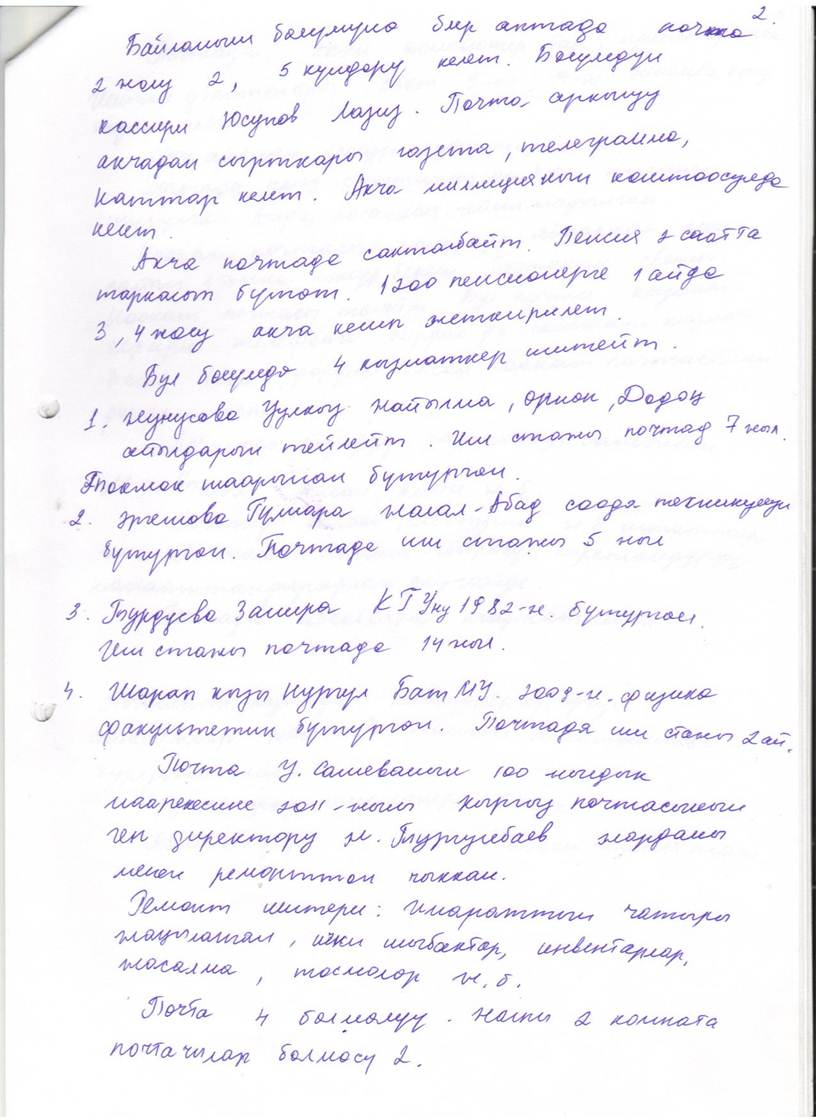 2.
Байланыш бөлүмүнө бир аптада почта
2 жолу 2, 5 күндөрү келет. Бөлүмдүн
кассири Юсупов Лазиз. Почта аркылуу
акчадан сырткары газета, телеграмма,
каттар келет. Акча милициянын коштоосунда
келет.
Акча почтада сакталбайт. Пенсия 2 саатта
таркатып бүтөт. 1200 пенсионерге 1 айда
3, 4 жолу акча келип жеткирилет.
Бул бөлүмдө 4 кызматкер иштейт.
1. Жунусова Уулкыз Найылма, Орион, Додоц
айылдарын тейлейт. Иш стажы почтад 7 жыл.
Токмок шаарынан бүтүргөн.
2. Эрешова Гүлнара Жалал-Абад соода техникумун
бүтүргөн. Почтада иш стажы 5 жыл
3. Турдуева Замира КГУну 1982-ж. бүтүргөн.
Иш стажы почтада 14 жыл.
4. Шарап кызы Нургүл БатМУ. 2009-ж. физика
факультетин бүтүргөн. Почтада иш стажы 2 ай.
Почта У. Салиеванын 100 жылдык
маарекесине 2011-жылы кыргыз почтасынын
ген директору Ж. Тургунбаев жардамы
менен ремонттон чыккан.
Ремонт иштери: Имараттын чатыры
жаңыланган, ички шыбактар, инвентарлар,
жасалма, тосмолор ж.б.
Почта 4 бөлмөлүү. Жалпы 2 комната
почтачылар бөлмөсү 2.